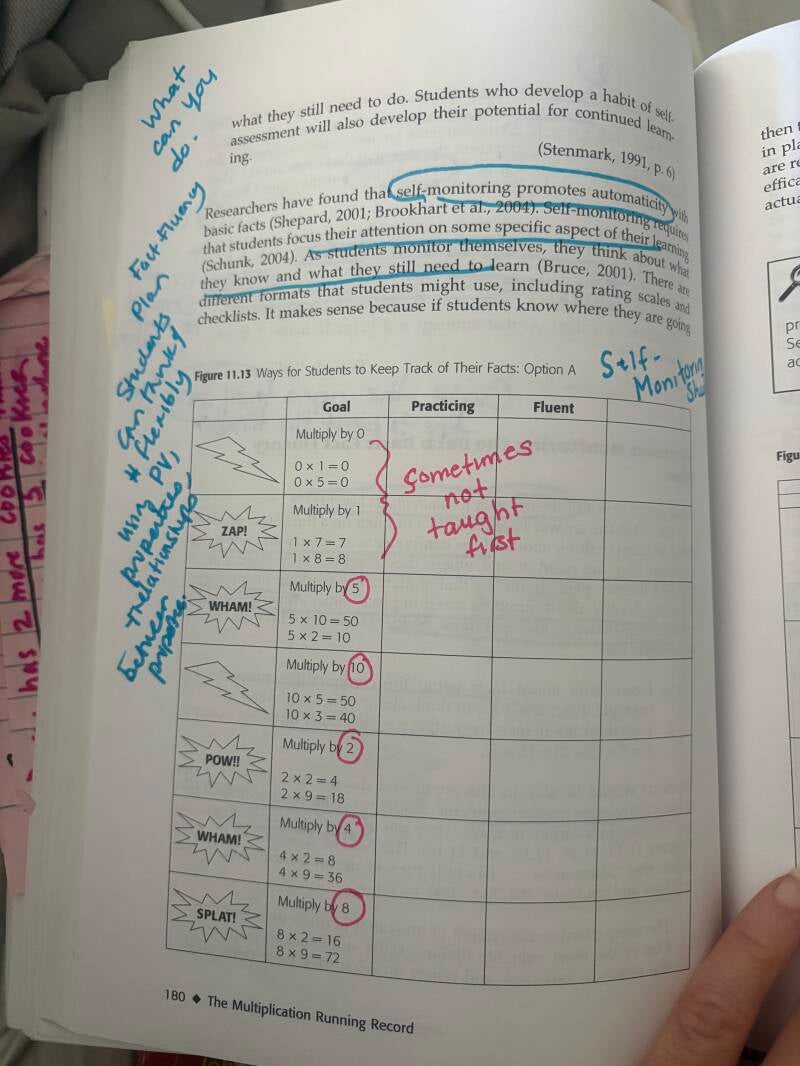 what they still need to do. Students who develop a habit of self-
assessment will also develop their potential for continued learn-
ing.
(Stenmark, 1991, p. 6)
Researchers have found that self-monitoring promotes automaticity with
basic facts (Shepard, 2001; Brookhart et al., 2004). Self-monitoring requires
that students focus their attention on some specific aspect of their learning
(Schunk, 2004). As students monitor themselves, they think about what
they know and what they still need to learn (Bruce, 2001). There are
different formats that students might use, including rating scales and
checklists. It makes sense because if students know where they are going
What
can you
do.
Fact fluency
Plan
Students
can think
flexibly
using PV,
properties,
relationships
between
Figure 11.13 Ways for Students to Keep Track of Their Facts: Option A
Self-
Monitoring
Goal Practicing Fluent
Multiply by 0
0 × 1 = 0
0 × 5 = 0
sometimes
not
taught
first
ZAP!
Multiply by 1
1 × 7 = 7
1 × 8 = 8
WHAM!
Multiply by 5
5 × 10 = 50
5 × 2 = 10
Multiply by 10
10 × 5 = 50
10 × 3 = 40
POW!!
Multiply by 2
2 × 2 = 4
2 × 9 = 18
WHAM!
Multiply by 4
4 × 2 = 8
4 × 9 = 36
SPLAT!
Multiply by 8
8 × 2 = 16
8 × 9 = 72
180 ◆ The Multiplication Running Record
has 2 more cookies
has 3 cookies
then
in
are